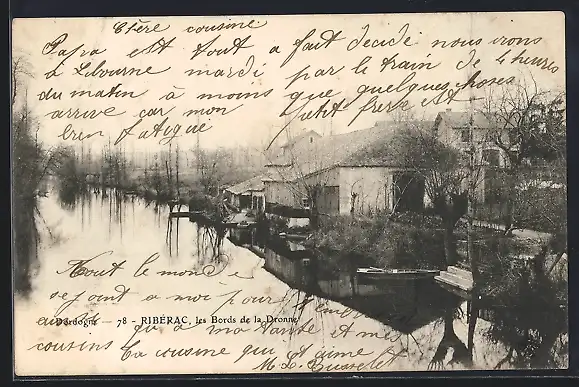 Chère cousine
Papa est tout a fait decidé nous irons
a Libourne mardi par le train de 4 heures
du matin à moins que quelques choses
arrive car mon petit frère est
bien fatigué
Tout le monde
se joint a moi pour
Dordogne — 78 - RIBÉRAC, les Bords de la Dronne
qu'a ma tante et mes
cousins ta cousine qui t'aime